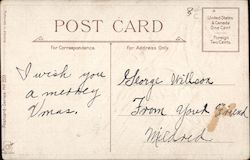 8
POST CARD
United States
& Canada
One Cent
Foreign
Two Cents
For Correspondence.
For Address Only.
I wish you
a merrey
Xmas.
George Willson
From Your Friend
Mildred